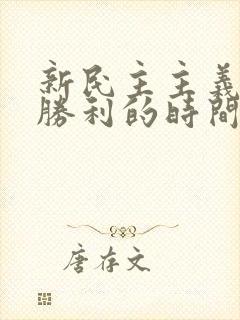 新民主主義
勝利的時間
唐存文